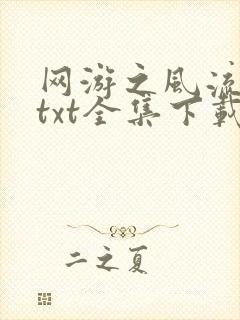 网游之风流
txt全集下载
二之夏